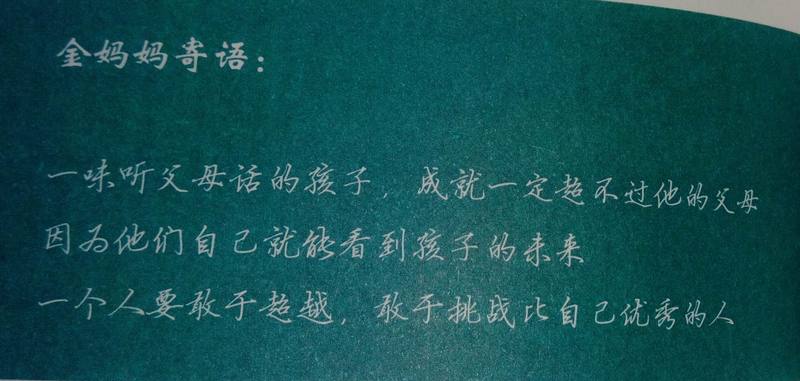 金妈妈寄语：
一味听父母话的孩子，成就一定超不过他的父母
因为他们自己就能看到孩子的未来
一个人要敢于超越，敢于挑战比自己优秀的人